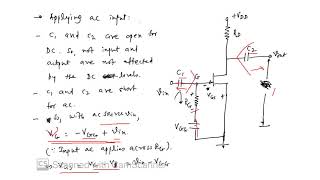 → Applying ac input:
- C1 and C2 are open for
DC. So, not input and
output are not affected
by the DC levels.
- C1 and C2 are short
for ac.
- So, with ac source vin,
VG = - VGG + vin
(∵ Input ac applies across RG)
+VDD
RD
C2
Vout
C1
G
Vin
RG
VGS
VGG
CS Scanned with CamScanner